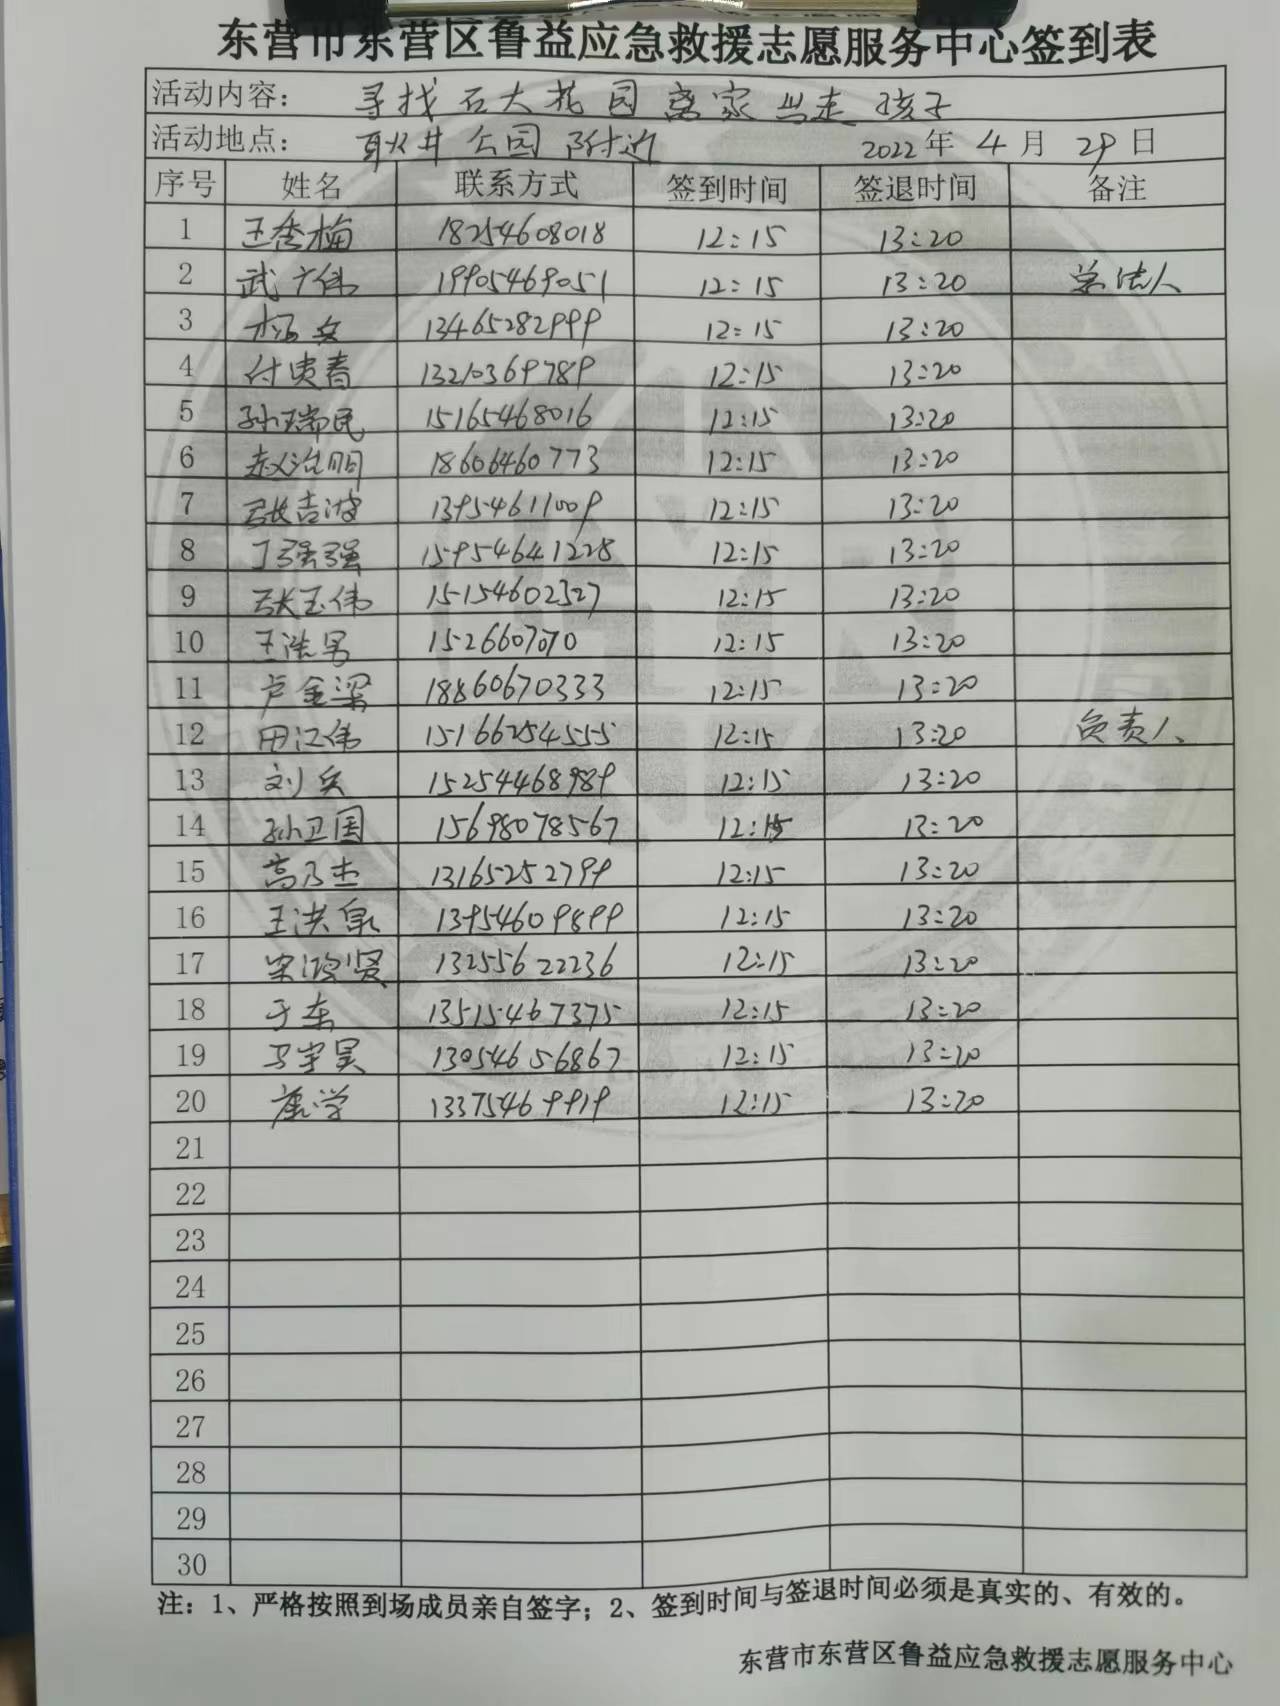 东营市东营区鲁益应急救援志愿服务中心签到表
活动内容： 寻找石大花园离家出走孩子
活动地点： 耿井公园附近 2022年 4月 29日
序号 姓名 联系方式 签到时间 签退时间 备注
1 王秀梅 18254608018 12:15 13:20
2 武广伟 19905469051 12:15 13:20 法人
3 杨兵 13465282999 12:15 13:20
4 付贵春 13210369789 12:15 13:20
5 孙瑞民 15165468016 12:15 13:20
6 赵治明 18606460773 12:15 13:20
7 张吉波 13954611009 12:15 13:20
8 丁强强 15954641228 12:15 13:20
9 张玉伟 15154602527 12:15 13:20
10 王浩男 1526607070 12:15 13:20
11 卢金梁 18860670333 12:15 13:20
12 田江伟 15166254555 12:15 13:20 负责人
13 刘兵 15254468989 12:15 13:20
14 孙卫国 15698078567 12:15 13:20
15 高乃杰 13165252799 12:15 13:20
16 王洪泉 13954609899 12:15 13:20
17 宋鸿贤 13255622236 12:15 13:20
18 于东 13515467375 12:15 13:20
19 马宇昊 13054656867 12:15 13:20
20 学 13375469919 12:15 13:20
21
22
23
24
25
26
27
28
29
30
注：1、严格按照到场成员亲自签字；2、签到时间与签退时间必须是真实的、有效的。
东营市东营区鲁益应急救援志愿服务中心